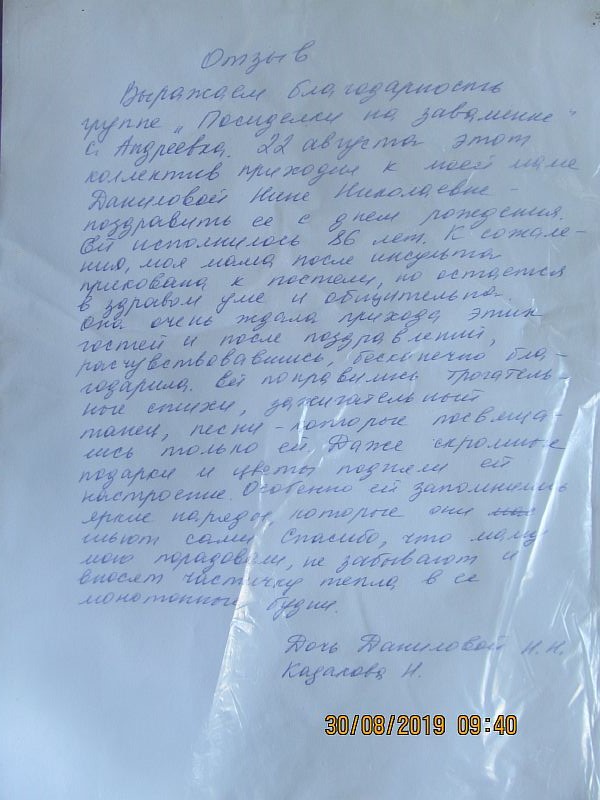 Отзыв
Выражаем благодарность
группе „Посиделки на завалинке"
с. Андреевка. 22 августа этот
коллектив приходил к моей маме
Даниловой Нине Николаевне -
поздравить ее с днем рождения.
Ей исполнилось 86 лет. К сожале-
нию, моя мама после инсульта
прикована к постели, но остается
в здравом уме и общительна.
Она очень ждала прихода этих
гостей и после поздравлений,
расчувствовавшись, бесконечно бла-
годарила. Ей понравились трогатель-
ные стихи, зажигательный
танец, песни - которые посвяща-
лись только ей. Даже скромные
подарки и цветы подняли ей
настроение. Особенно ей запомнились
яркие наряды, которые они
шьют сами. Спасибо, что маму
мою порадовали, не забывают и
вносят частичку тепла в ее
монотонные будни.
Дочь Даниловой Н.Н.
Казакова Н.
30/08/2019 09:40